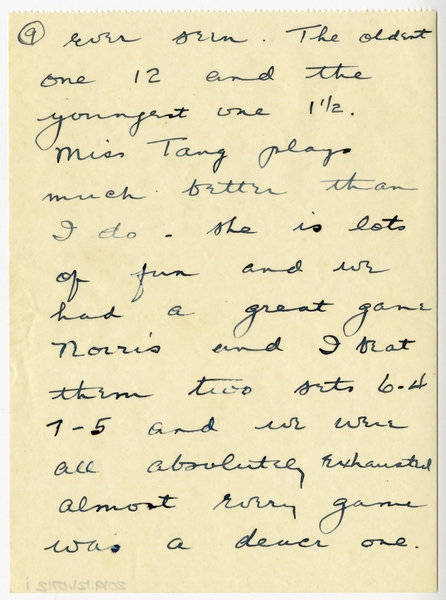 9 ever seen. The oldest
one 12 and the
youngest one 1 1/2.
Miss Tang plays
much better than
I do - she is lots
of fun and we
had a great game
Norris and I beat
them two sets 6-4
7-5 and we were
all absolutely exhausted
almost every game
was a deuce one.